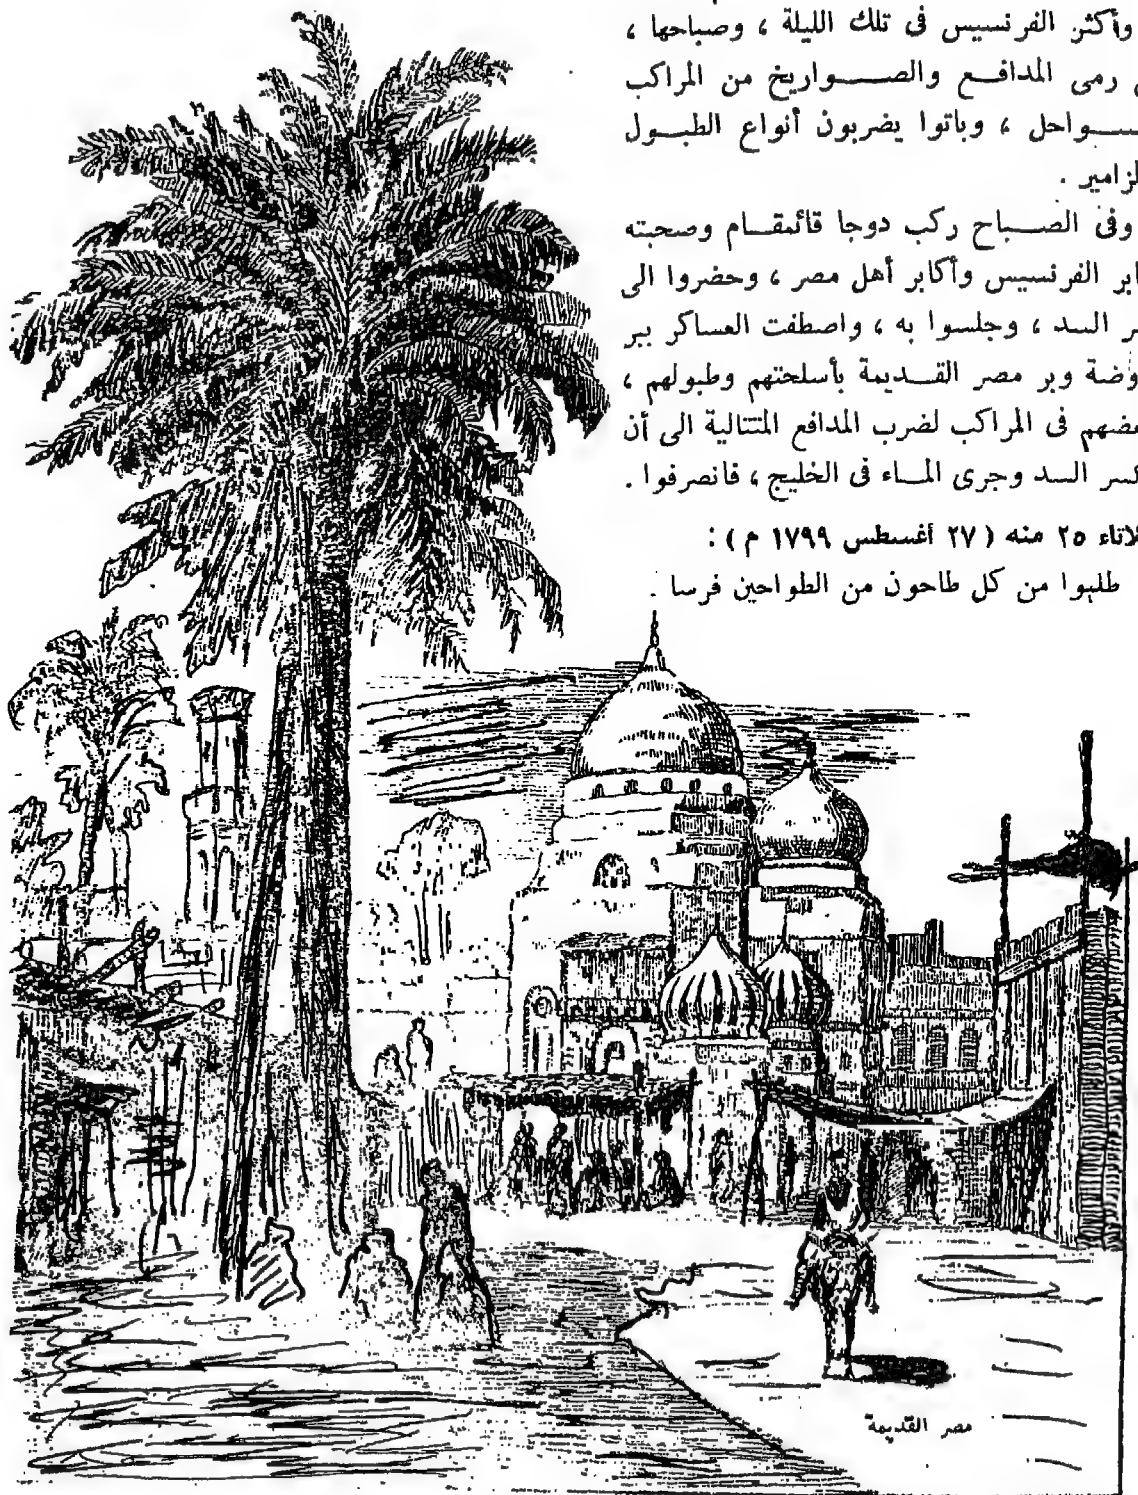 وأكثر الفرنسيس فى تلك الليلة ، وصباحها ،
رمى المدافع والصواريخ من المراكب
ـواحل ، وباتوا يضربون أنواع الطبول
لزامير .
وفى الصباح ركب دوجا قائمقام وصحبته
ابر الفرنسيس وأكابر أهل مصر ، وحضروا الى
ر السد ، وجلسوا به ، واصطفت العساكر ببر
وضة وبر مصر القديمة بأسلحتهم وطبولهم ،
عضهم فى المراكب لضرب المدافع المتتالية الى أن
كسر السد وجرى الماء فى الخليج ، فانصرفوا .
لاثاء ٢٥ منه ( ٢٧ أغسطس ١٧٩٩ م ) :
طلبوا من كل طاحون من الطواحين فرسا .
مصر القديمة